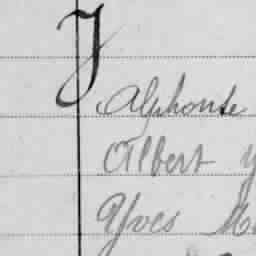 J
Alphonse
Albert
Yves